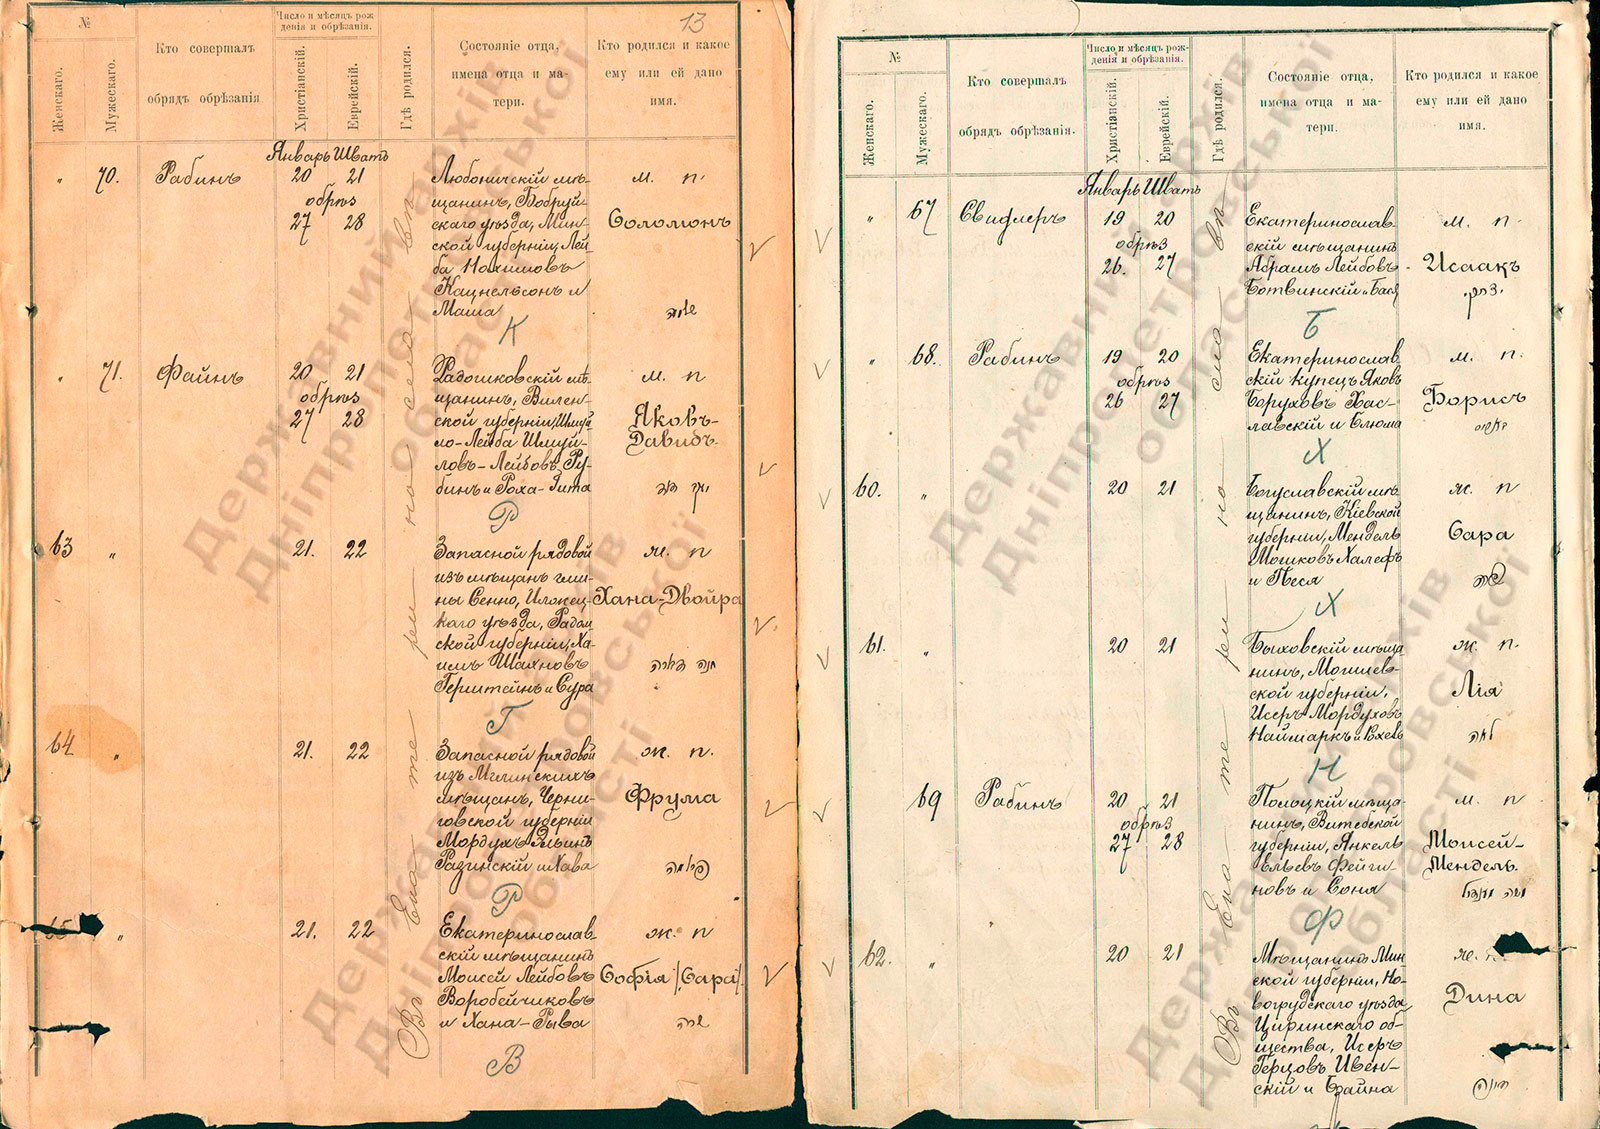 13
№
Женскаго.
Мужескаго.
Кто совершалъ
обрядъ обрѣзанія
Число и мѣсяцъ рож
денія и обрѣзанія.
Христіанскій.
Еврейскій.
Гдѣ родился.
Состояніе отца,
имена отца и ма-
тери.
Кто родился и какое
ему или ей дано
имя.
Январь Шватъ
" 70. Рабинъ 20 21
обрѣз
27 28
Любоничскій мѣ-
щанинъ, Бобруй-
скаго уѣзда, Мин-
ской губерніи, Лей-
ба Нохимовъ
Кацнельсонъ и
Маша
м. п.
Соломонъ
שלמה
К
" 71. Файнъ 20 21
обрѣз
27 28
Радошковскій мѣ-
щанинъ, Вилен-
ской губерніи, Шмуй
ло-Лейба Шмуй-
ловъ-Лейбовъ Ру-
бинъ и Роха-Гита
м. п
Яковъ-
Давидъ.
יעקב דוד
Р
63 " 21. 22
Запасной рядовой
изъ мѣщанъ гми-
ны Сенно, Илжец-
каго уѣзда, Радом
ской губерніи, Ха-
имъ Шахновъ
Герштейнъ и Сура
ж. п
Хана-Двойра
חנה דבורה
Г
64 " 21. 22
Запасной рядовой
изъ Мглинскихъ
мѣщанъ, Черни-
говской губерніи
Мордухъ Эльинъ
Разинскій и Хава
ж. п.
Фрума
פרומה
Р
65 " 21. 22
Екатеринослав-
скій мѣщанинъ
Моисей Лейбовъ
Воробейчиковъ
и Хана-Рыва
ж. п
Софія /Сара/.
שרה
В
Въ Екатеринославѣ
№
Женскаго.
Мужескаго.
Кто совершалъ
обрядъ обрѣзанія.
Число и мѣсяцъ рож-
денія и обрѣзанія.
Христіанскій.
Еврейскій.
Гдѣ родился.
Состояніе отца,
имена отца и ма-
тери.
Кто родился и какое
ему или ей дано
имя.
Январь Шватъ
" 67 Свидлеръ 19 20
обрѣз
26. 27
Екатеринослав-
скій мѣщанинъ
Абрамъ Лейбовъ
Ботвинскій и Бася
м. п.
Исаакъ
יצחק
Б
" 68. Рабинъ 19 20
обрѣз
26 27
Екатеринослав
скій купецъ Яковъ
Боруховъ Хас-
лавскій и Блюма
м. п.
Борисъ
Х
60. " 20 21
Богуславскій мѣ
щанинъ, Кіевской
губерніи, Мендель
Мошковъ Халефъ
и Песя
ж. п
Сара
שרה
Х
61. " 20 21
Быховскій мѣща
нинъ, Могилев-
ской губерніи,
Исеръ Мордуховъ
Наймаркъ и Рохель
ж. п.
Лія
לאה
Н
69 Рабинъ 20 21
обрѣз
27 28
Полоцкій мѣща-
нинъ, Витебской
губерніи, Янкель
Ельевъ Фейги-
новъ и Соня
м. п
Моисей-
Мендель.
משה מענדל
Ф
62. " 20 21
Мѣщанинъ Мин-
ской губерніи, Но-
вогрудскаго уѣзда
Циринскаго об-
щества, Исеръ
Герцовъ Ивен-
скій и Брайна
ж. п.
Дина
דינה
Державний архів
Дніпропетровської
області